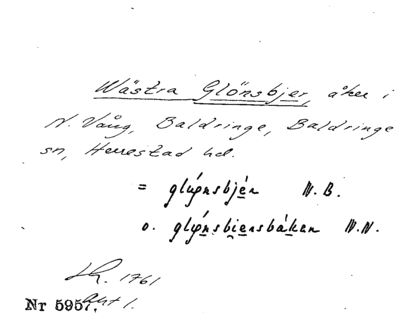 Wästra Glönsbjer, åker i
N. Vång, Baldringe, Baldringe
sn, Herrestad hd.
= gly̨nsbjęn N.B.
o. gly̨nsbięnsbákęn N.N.
LR. 1761
Akt 1.
Nr 5957.